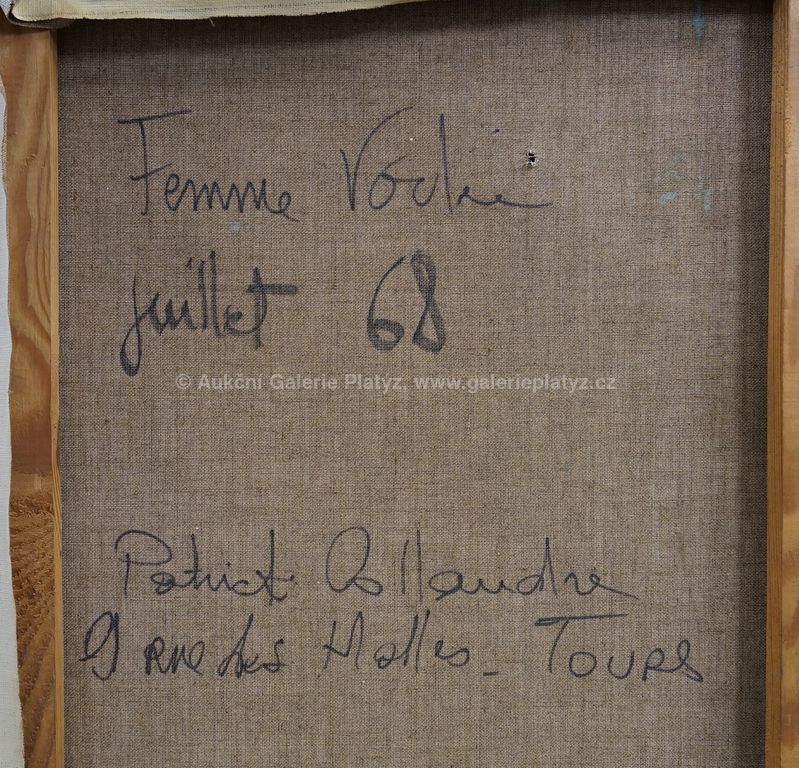 Femme
juillet 68
© Aukční Galerie Platyz, www.galerieplatyz.cz
Patrick
9 rue des Halles - TOURS